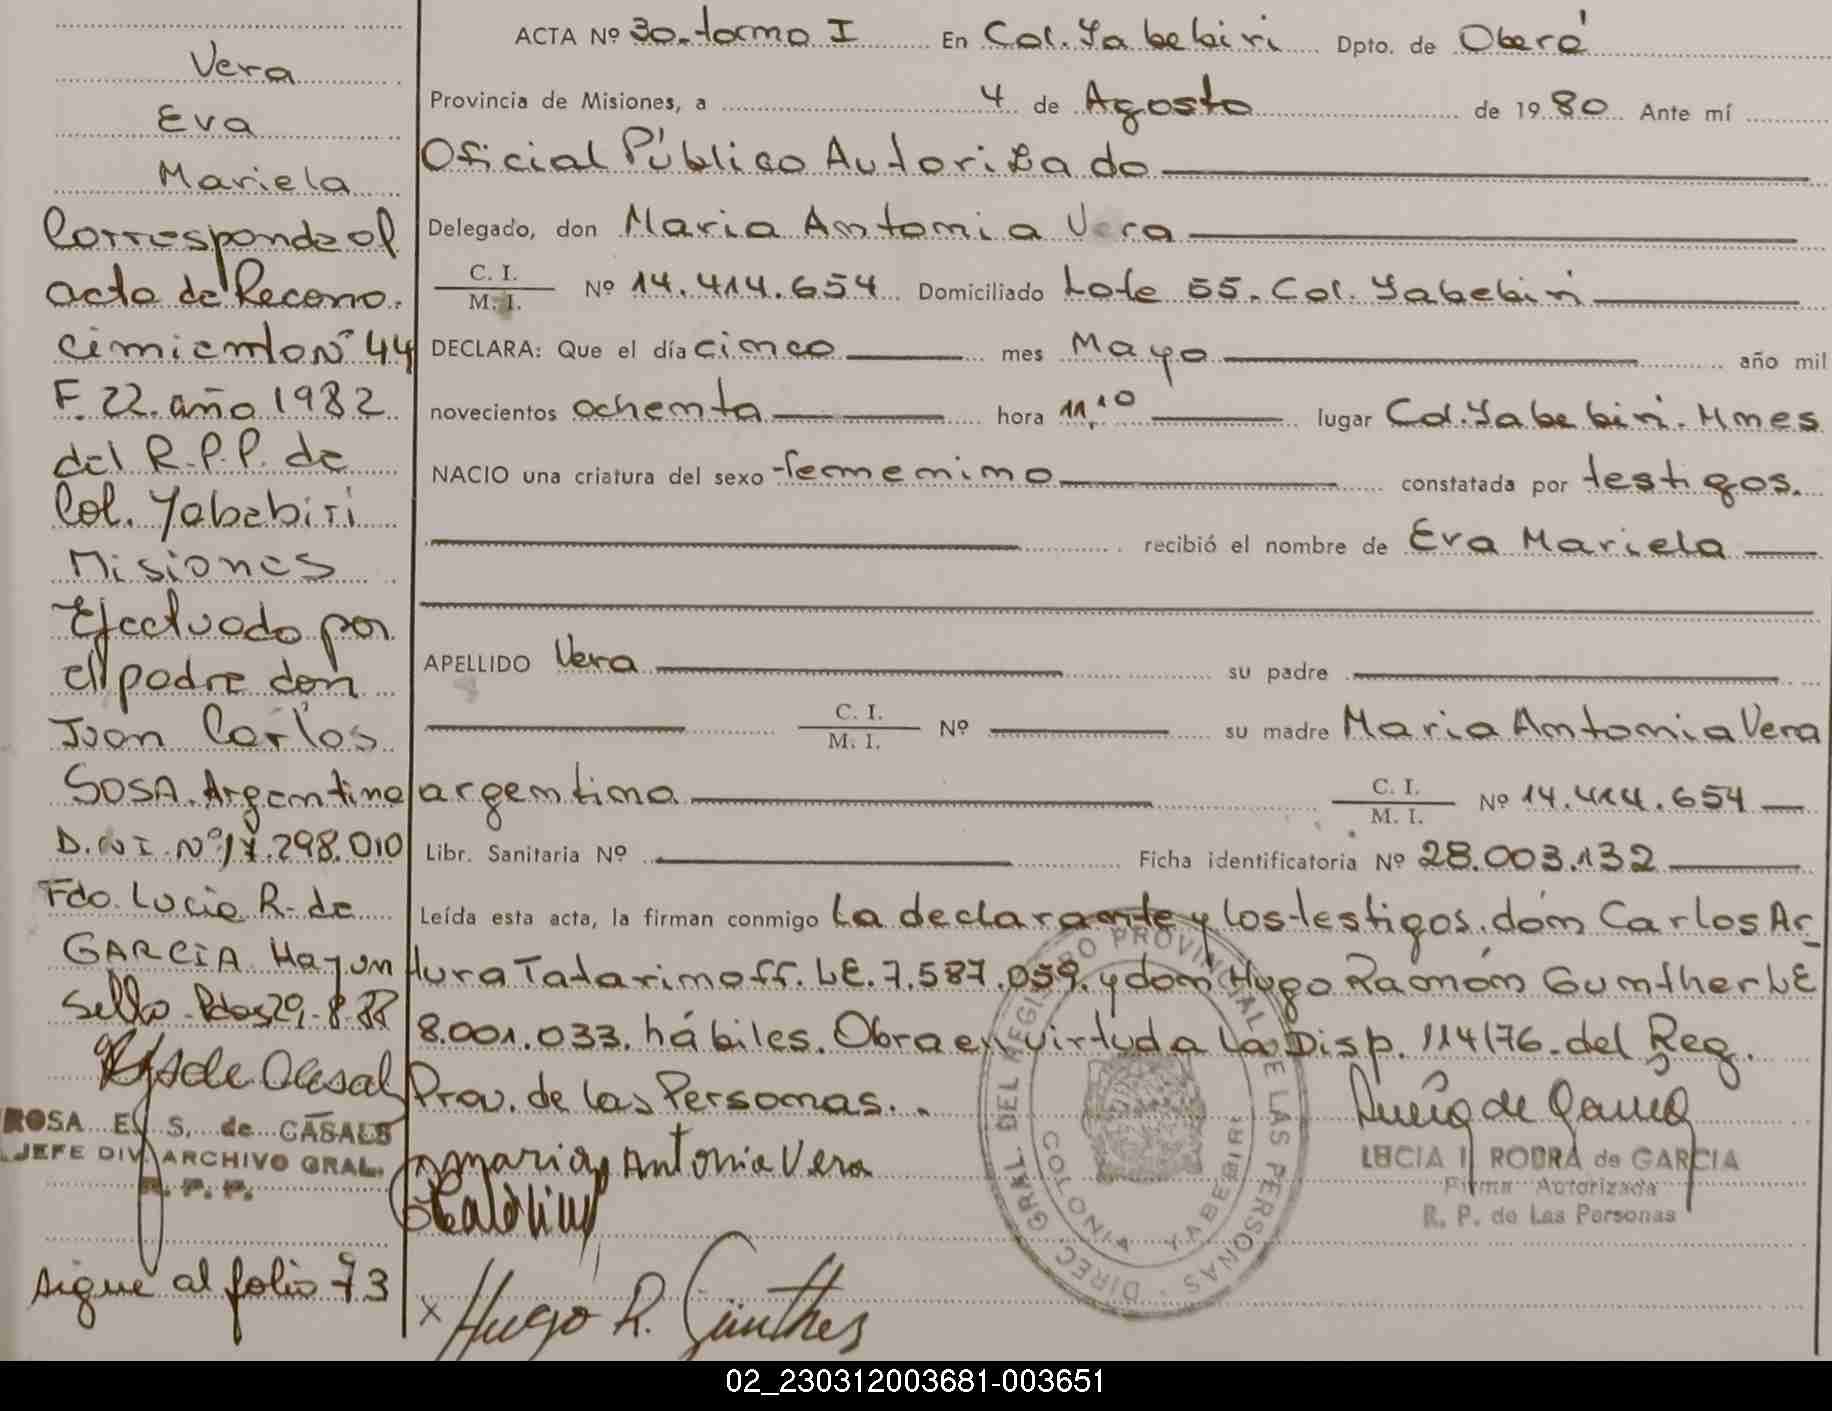 Vera
Eva
Mariela
Corresponde al
acta de Recono.
cimiento Nº 44
F. 22. año 1982
del R.P.P. de
Col. Yabebiri
Misiones
Efectuado por
el padre don
Juan Carlos
SOSA. Argentino
D.N.I. Nº 17.298.010
Fdo. Lucia R. de
GARCIA. Hay un
Sello. Pdas 29-8-88
ROSA E. S. de CASALS
JEFE DIV. ARCHIVO GRAL.
R. P. P.
sigue al folio 73
ACTA Nº 30-tomo I En Col. Yabebiri Dpto. de Oberá
Provincia de Misiones, a 4 de Agosto de 1980 Ante mí
Oficial Público Autorizado
Delegado, don Maria Antonia Vera
C. I.
M. I. Nº 14.414.654 Domiciliado Lote 55. Col. Yabebiri
DECLARA: Que el día cinco mes Mayo año mil
novecientos ochenta hora 11,10 lugar Col. Yabebiri. Mnes
NACIO una criatura del sexo femenino constatada por testigos.
recibió el nombre de Eva Mariela
APELLIDO Vera su padre
C. I.
M. I. Nº su madre Maria Antonia Vera
argentina C. I.
M. I. Nº 14.414.654
Libr. Sanitaria Nº Ficha identificatoria Nº 28.003.132
Leída esta acta, la firman conmigo La declarante y los testigos. don Carlos Ar-
tura Tatarinoff. LE. 7.587.059. y don Hugo Ramón Gunther LE
8.001.033. hábiles. Obra en virtud a la Disp. 114/76. del Reg.
Prov. de las Personas.
Maria Antonia Vera
LUCIA I. RODRA de GARCIA
Firma Autorizada
R. P. de Las Personas
DIREC. GRAL. DEL REGISTRO PROVINCIAL DE LAS PERSONAS
COLONIA YABEBIRI
x Hugo R. Günther
02_230312003681-003651